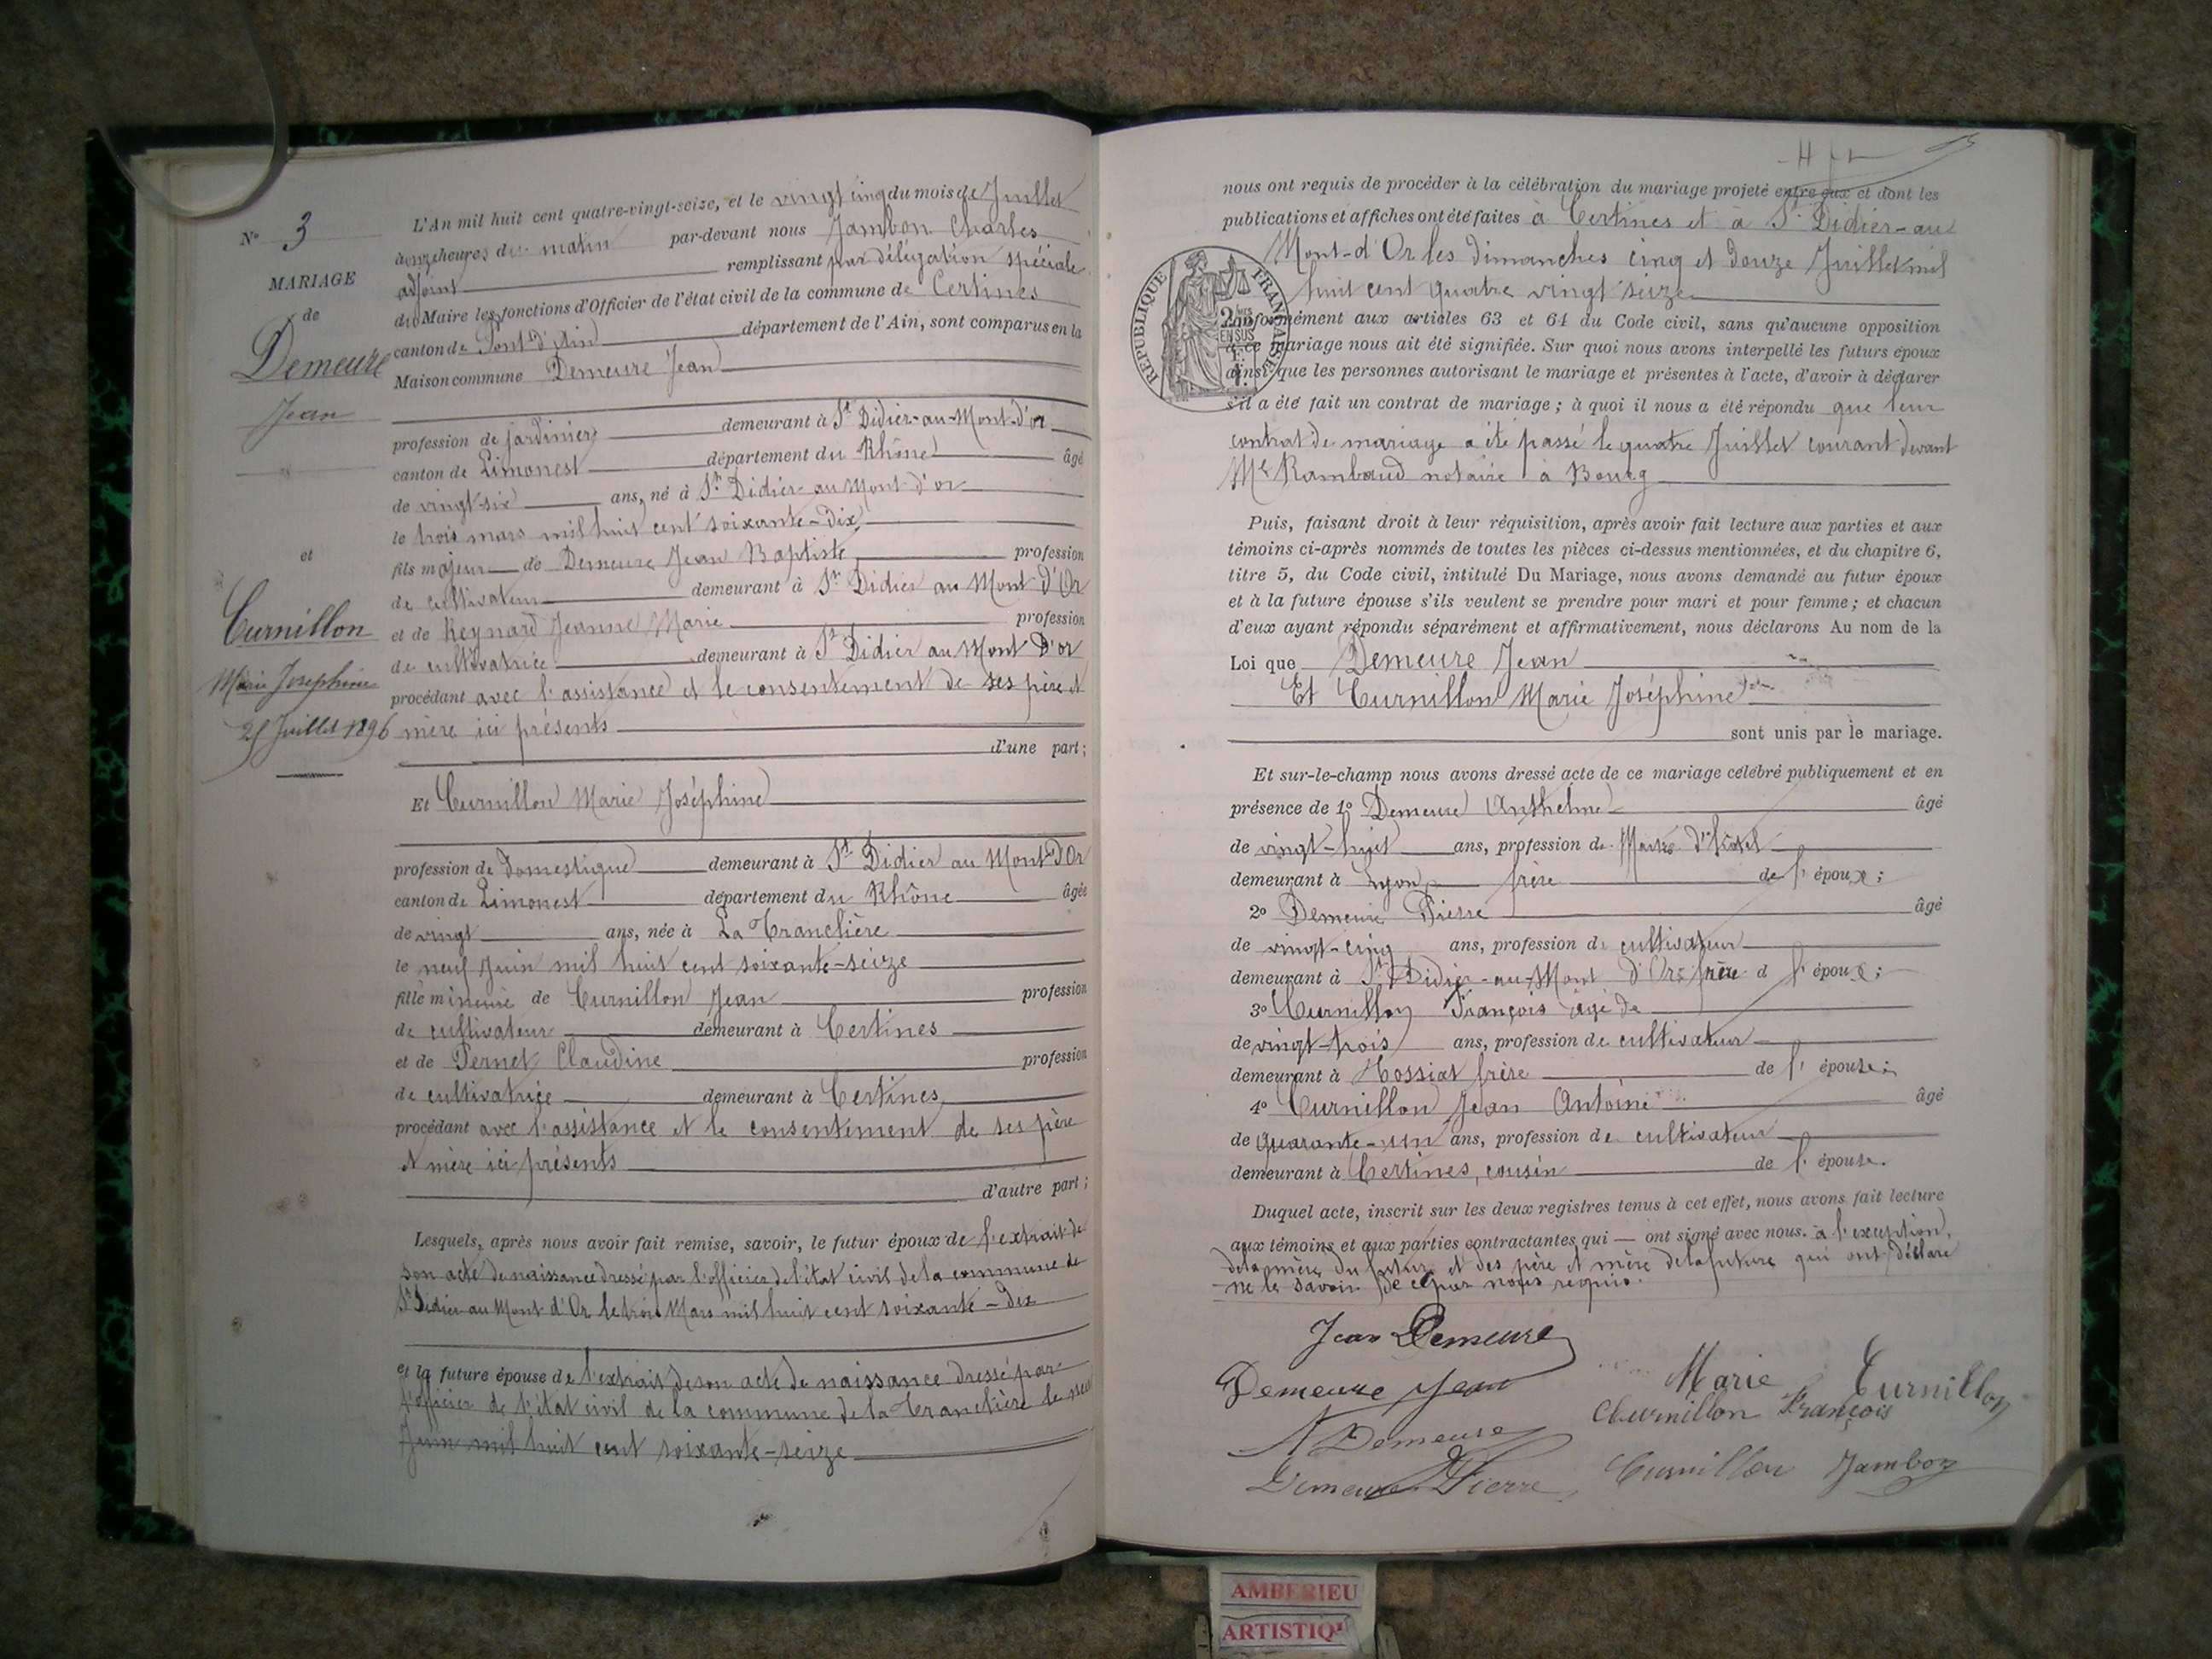 N° 3
MARIAGE
de
Demeure
Jean
et
Curnillon
Marie Josephine
25 Juillet 1896
L'An mil huit cent quatre-vingt-seize, et le vingt cinq du mois de Juillet
à onze heures du matin par-devant nous Jambon Charles
adjoint remplissant par délégation spéciale
du Maire les fonctions d'Officier de l'état civil de la commune de Certines
canton de Pont d'Ain département de l'Ain, sont comparus en la
Maison commune Demeure Jean
profession de jardinier demeurant à St Didier-au-Mont-d'or
canton de Limonest département du Rhône âgé
de vingt-six ans, né à St Didier au Mont d'or
le trois mars mil huit cent soixante-dix
fils majeur de Demeure Jean Baptiste profession
de cultivateur demeurant à St Didier au Mont d'Or
et de Reynard Jeanne Marie profession
de cultivatrice demeurant à St Didier au Mont D'or
procédant avec l'assistance et le consentement de ses père et
mère ici présents
d'une part;
Et Curnillon Marie Joséphine
profession de domestique demeurant à St Didier au Mont D'Or
canton de Limonest département du Rhône âgée
de vingt ans, née à La Tranclière
le neuf Juin mil huit cent soixante-seize
fille mineure de Curnillon Jean profession
de cultivateur demeurant à Certines
et de Pernet Claudine profession
de cultivatrice demeurant à Certines
procédant avec l'assistance et le consentement de ses père
et mère ici présents
d'autre part;
Lesquels, après nous avoir fait remise, savoir, le futur époux de l'extrait de
son acte de naissance dressé par l'officier de l'état civil de la commune de
St Didier au Mont d'Or le trois Mars mil huit cent soixante-dix
et la future épouse de l'extrait de son acte de naissance dressé par
l'officier de l'état civil de la commune de la Tranclière le neuf
Juin mil huit cent soixante-seize
nous ont requis de procéder à la célébration du mariage projeté entre eux et dont les
publications et affiches ont été faites à Certines et a St Didier-au
Mont-d'Or les dimanches cinq et douze Juillet mil
huit cent quatre vingt seize
REPUBLIQUE FRANÇAISE
conformément aux articles 63 et 64 du Code civil, sans qu'aucune opposition
à ce mariage nous ait été signifiée. Sur quoi nous avons interpellé les futurs époux
ainsi que les personnes autorisant le mariage et présentes à l'acte, d'avoir à déclarer
s'il a été fait un contrat de mariage; à quoi il nous a été répondu que leur
contrat de mariage a été passé le quatre Juillet courant devant
Me Rambaud notaire à Bourg
Puis, faisant droit à leur réquisition, après avoir fait lecture aux parties et aux
témoins ci-après nommés de toutes les pièces ci-dessus mentionnées, et du chapitre 6,
titre 5, du Code civil, intitulé Du Mariage, nous avons demandé au futur époux
et à la future épouse s'ils veulent se prendre pour mari et pour femme; et chacun
d'eux ayant répondu séparément et affirmativement, nous déclarons Au nom de la
Loi que Demeure Jean
Et Curnillon Marie Joséphine
sont unis par le mariage.
Et sur-le-champ nous avons dressé acte de ce mariage célébré publiquement et en
présence de 1° Demeure Anthelme âgé
de vingt-huit ans, profession de Maitre d'hôtel
demeurant à Lyon frère de l' époux;
2° Demeure Pierre âgé
de vingt-cinq ans, profession de cultivateur
demeurant à St Didier-au-Mont d'Or frère d l' époux;
3° Curnillon François âgé de
de vingt-trois ans, profession de cultivateur
demeurant à Hossiat frère de l' épouse;
4° Curnillon Jean Antoine âgé
de Quarante-un ans, profession de cultivateur
demeurant à Certines, cousin de l' épouse.
Duquel acte, inscrit sur les deux registres tenus à cet effet, nous avons fait lecture
aux témoins et aux parties contractantes qui — ont signé avec nous. à l'exception,
de la mère du futur et des père et mère de la future qui ont déclaré
ne le savoir de ce par nous requis.
Jean Demeure
Demeure Jean
Marie Curnillon
Churnillon François
A Demeure
Demeure Pierre
Curnillon Jambon
AMBERIEU
ARTISTIQ